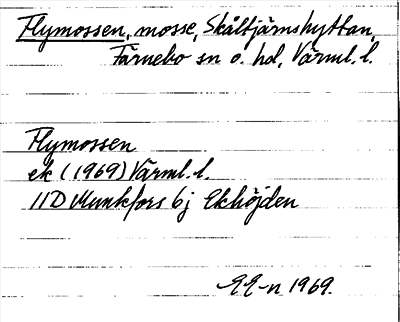 Flymossen, mosse, Skåltjärnshyttan,
Färnebo sn o. hd, Värml. l.
Flymossen
ek (1969) Värml. l.
11D Munkfors 6j Ekhöjden
1969.